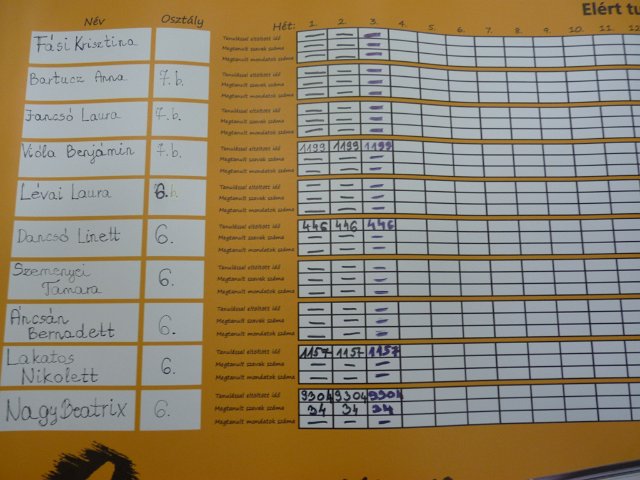 Elért tu
Név Osztály Hét: 1. 2. 3. 4. 5. 6. 7. 8. 9. 10. 11. 12
Fási Krisztina
Tanulással eltöltött idő — — —
Megtanult szavak száma — — —
Megtanult mondatok száma — — —
Bartucz Anna 7.b.
Tanulással eltöltött idő — — —
Megtanult szavak száma — — —
Megtanult mondatok száma — — —
Jancsó Laura 7.b.
Tanulással eltöltött idő — — —
Megtanult szavak száma — — —
Megtanult mondatok száma — — —
Vióla Benjámin 7.b.
Tanulással eltöltött idő 1199 1199 1199
Megtanult szavak száma — — —
Megtanult mondatok száma — — —
Lévai Laura 6.b.
Tanulással eltöltött idő — — —
Megtanult szavak száma — — —
Megtanult mondatok száma — — —
Dancsó Linett 6.
Tanulással eltöltött idő 446 446 446
Megtanult szavak száma — — —
Megtanult mondatok száma — — —
Szemenyei
Tamara 6.
Tanulással eltöltött idő — — —
Megtanult szavak száma — — —
Megtanult mondatok száma — — —
Áncsán
Bernadett 6.
Tanulással eltöltött idő — — —
Megtanult szavak száma — — —
Megtanult mondatok száma — — —
Lakatos
Nikolett 6.
Tanulással eltöltött idő 1157 1157 1157
Megtanult szavak száma — — —
Megtanult mondatok száma — — —
Nagy Beatrix 6.
Tanulással eltöltött idő 9304 9304 9304
Megtanult szavak száma 34 34 34
Megtanult mondatok száma — — —